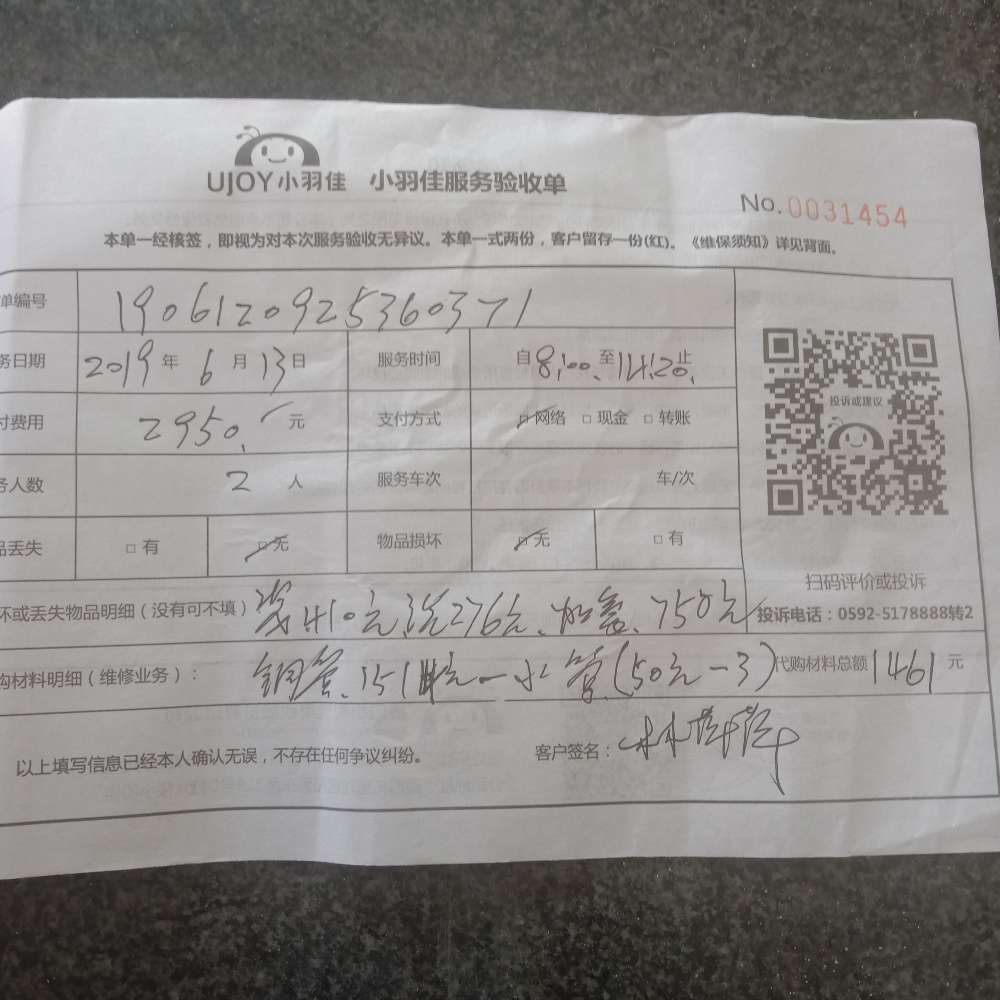 UJOY小羽佳 小羽佳服务验收单
No.0031454
本单一经核签，即视为对本次服务验收无异议。本单一式两份，客户留存一份(红)。《维保须知》详见背面。
单编号 1906120925360371
务日期 2019年6月13日 服务时间 自8:00至14:20止
付费用 2950元 支付方式 □网络 □现金 □转账
投诉或建议
务人数 2人 服务车次 车/次
品丢失 □有 □无 物品损坏 □无 □有
扫码评价或投诉
坏或丢失物品明细（没有可不填） 410元 洗276元、加氨、750元
投诉电话：0592-5178888转2
购材料明细（维修业务）： 铜管、151 水管(50元-3) 代购材料总额 1461元
以上填写信息已经本人确认无误，不存在任何争议纠纷。 客户签名：林萍萍